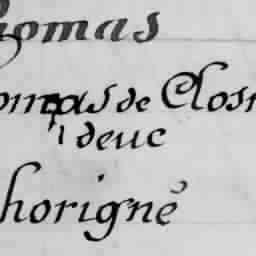 homas
omas de Clos
deuc
horigné